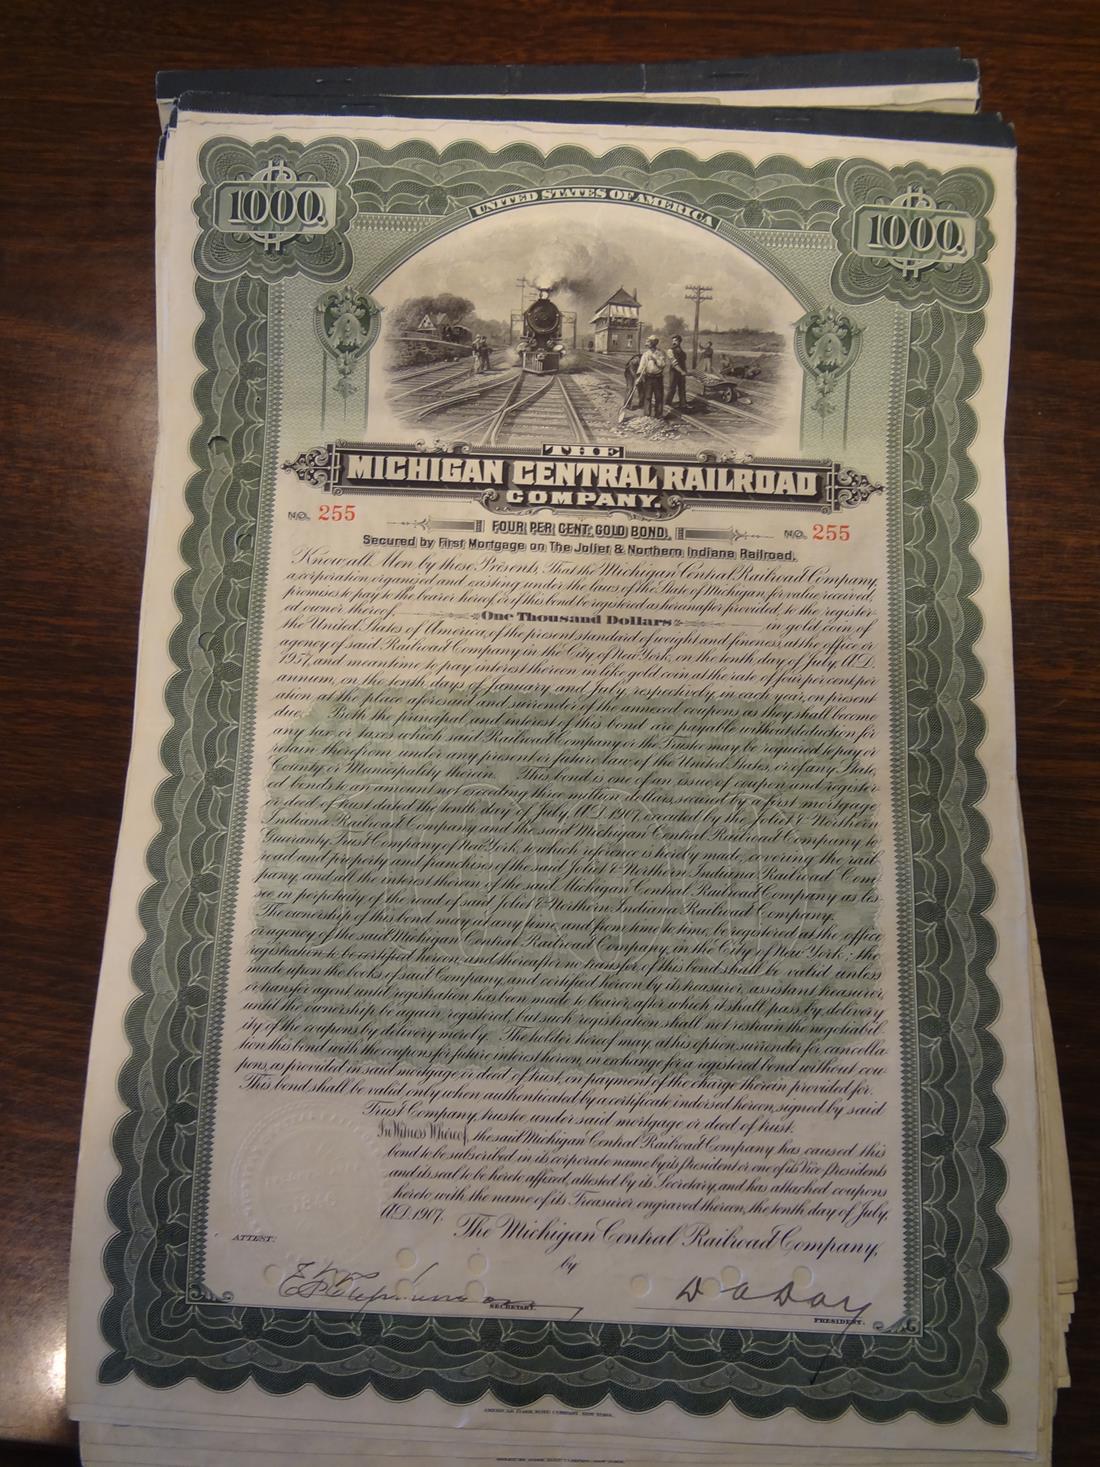 1000.
UNITED STATES OF AMERICA
1000.
THE
MICHIGAN CENTRAL RAILROAD
COMPANY.
NO. 255
FOUR PER CENT. GOLD BOND.
NO. 255
Secured by First Mortgage on The Joliet & Northern Indiana Railroad.
Know all Men by these Presents, That the Michigan Central Railroad Company,
a corporation organized and existing under the laws of the State of Michigan, for value received,
promises to pay to the bearer hereof, or if this bond be registered as hereinafter provided, to the register-
ed owner thereof, One Thousand Dollars in gold coin of
the United States of America, of the present standard of weight and fineness, at the office or
agency of said Railroad Company in the City of New York, on the tenth day of July, A.D.
1957, and meantime to pay interest thereon in like gold coin at the rate of four per cent. per
annum, on the tenth days of January and July, respectively, in each year, on present-
ation at the place aforesaid and surrender of the annexed coupons as they shall become
due. Both the principal and interest of this bond are payable without deduction for
any tax or taxes which said Railroad Company or the Trustee may be required to pay or
retain therefrom under any present or future law of the United States, or of any State,
County or Municipality therein. This bond is one of an issue of coupon and register-
ed bonds to an amount not exceeding three million dollars, secured by a first mortgage
or deed of trust dated the tenth day of July, A.D. 1907, executed by the Joliet & Northern
Indiana Railroad Company and the said Michigan Central Railroad Company to
Guaranty Trust Company of New York, to which reference is hereby made, covering the rail-
road and property and franchises of the said Joliet & Northern Indiana Railroad Com-
pany, and all the interest therein of the said Michigan Central Railroad Company as les-
see in perpetuity of the road of said Joliet & Northern Indiana Railroad Company.
The ownership of this bond may at any time, and from time to time, be registered at the office
or agency of the said Michigan Central Railroad Company in the City of New York; the
registration to be certified hereon, and thereafter no transfer of this bond shall be valid unless
made upon the books of said Company, and certified hereon by its treasurer, assistant treasurer,
or transfer agent until registration has been made to bearer, after which it shall pass by delivery
until the ownership be again registered, but such registration shall not restrain the negotiabil-
ity of the coupons by delivery merely. The holder hereof may, at his option, surrender for cancella-
tion this bond with the coupons for future interest hereon, in exchange for a registered bond without cou-
pons, as provided in said mortgage or deed of trust, on payment of the charge therein provided for.
This bond shall be valid only when authenticated by a certificate indorsed hereon, signed by said
Trust Company, trustee under said mortgage or deed of trust.
In Witness Whereof, the said Michigan Central Railroad Company has caused this
bond to be subscribed in its corporate name by its President or one of its Vice Presidents
and its seal to be hereto affixed, attested by its Secretary, and has attached coupons
hereto with the name of its Treasurer engraved thereon, the tenth day of July,
A.D. 1907.
The Michigan Central Railroad Company,
ATTEST:
by
SECRETARY.
PRESIDENT.
AMERICAN BANK NOTE COMPANY, NEW YORK.